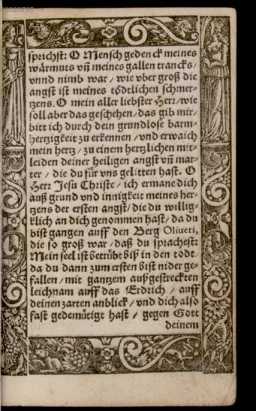 sprichst: O Mensch gedenck meines
wärmuts vñ meines gallen trancks/
vnnd nimb war/ wie vber groß die
angst ist meines tödtlichen schmer-
tzens. O mein aller liebster Herr/ wie
soll aber das geschehen/ das gib mir/
bitt ich durch dein grundlose barm-
hertzigkeit zu erkennen/ vnd erwaich
mein hertz/ zu einem hertzlichen mit-
leiden deiner heiligen angst vñ mar-
ter/ die du für vns gelitten hast. O
Herr Jesu Christe/ ich ermane dich
auß grund vnd innigkeit meines her-
tzens der ersten angst/ die du willig-
klich an dich genommen hast/ da du
bist gangen auff den Berg Oliueti,
die so groß war/ daß du sprachest:
Mein seel ist betrübt biß in den todt.
da du dann zum ersten bist nider ge-
fallen/ mit gantzem außgestreckten
leichnam auff das Erdrich/ auff
deinen zarten anblick/ vnd dich also
fast gedemütigt hast/ gegen Gott
deinem